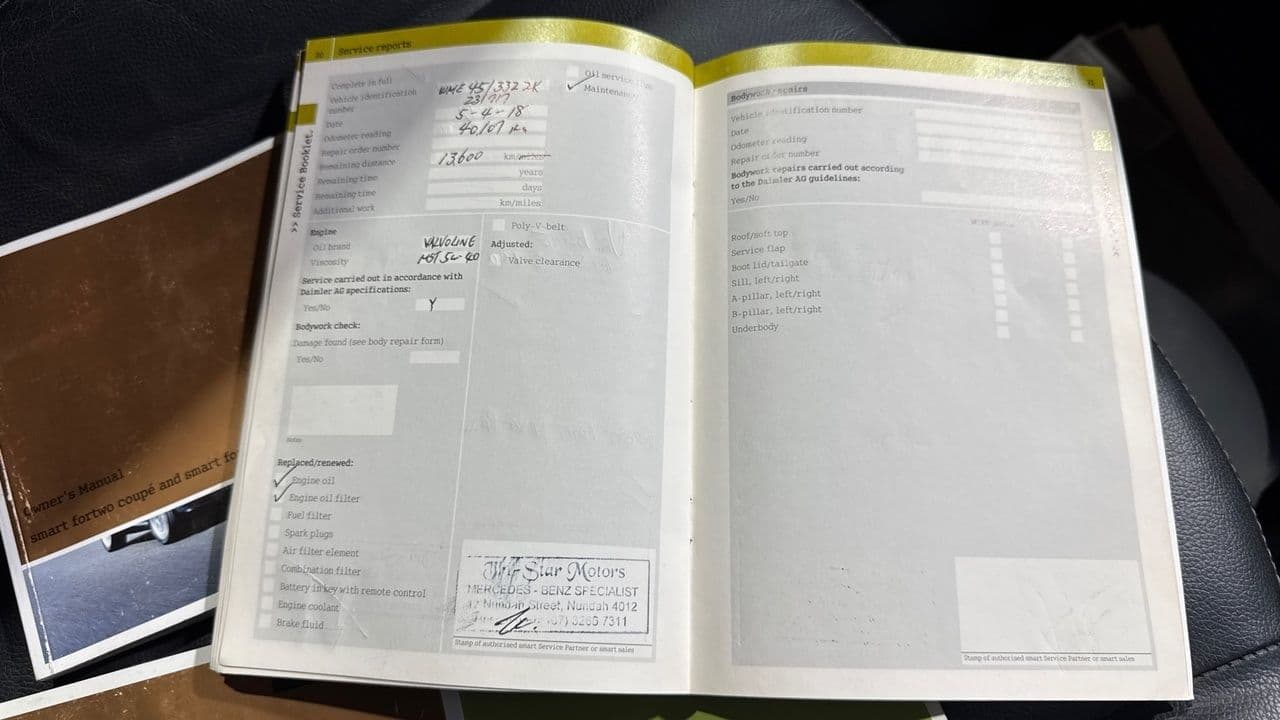 20 Service reports
Complete in full
Vehicle identification
number
WME 45/332 2K
Date
5-4-18
Odometer reading
Repair order number
Remaining distance
13,600 km/miles
Remaining time
years
Remaining time
days
Additional work
km/miles
Oil service
Maintenance
>> Service Booklet.
Engine
Oil brand
VALVOLINE
Viscosity
5W-40
Service carried out in accordance with
Daimler AG specifications:
Yes/No
Y
Bodywork check:
Damage found (see body repair form)
Yes/No
Notes
Replaced/renewed:
Engine oil
Engine oil filter
Fuel filter
Spark plugs
Air filter element
Combination filter
Battery in key with remote control
Engine coolant
Brake fluid
Poly-V-belt
Adjusted:
Valve clearance
Star Motors
MERCEDES - BENZ SPECIALIST
Street, Nundah 4012
3266 7311
Stamp of authorised smart Service Partner or smart sales
Bodywork repairs
Vehicle identification number
Date
Odometer reading
Repair order number
Bodywork repairs carried out according
to the Daimler AG guidelines:
Yes/No
Roof/soft top
Service flap
Boot lid/tailgate
Sill, left/right
A-pillar, left/right
B-pillar, left/right
Underbody
Stamp of authorised smart Service Partner or smart sales
Owner's Manual
smart fortwo coupé and smart fo